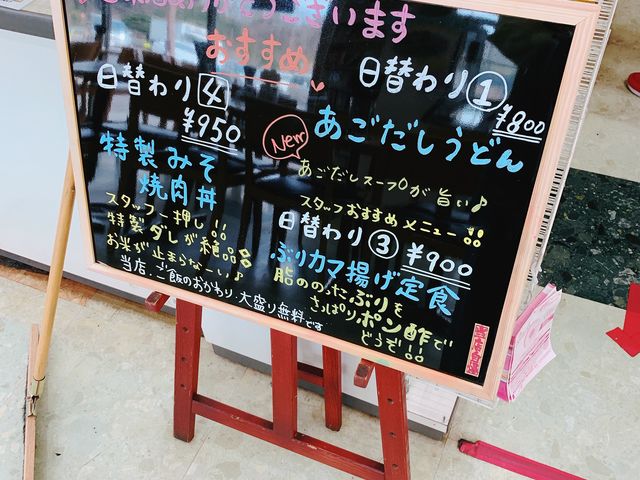 ございます
おすすめ
日替わり④
¥950
特製みそ
焼肉丼
スタッフ一押し!!
特製ダレが絶品
お米が止まらない♪
日替わり①
¥800
New
あごだしうどん
あごだしスープが旨い♪
スタッフおすすめメニュー!!
日替わり③
¥900
ぶりカマ揚げ定食
脂ののったぶりを
さっぱりポン酢で
どうぞ!!
当店、ご飯のおかわり、大盛り無料です